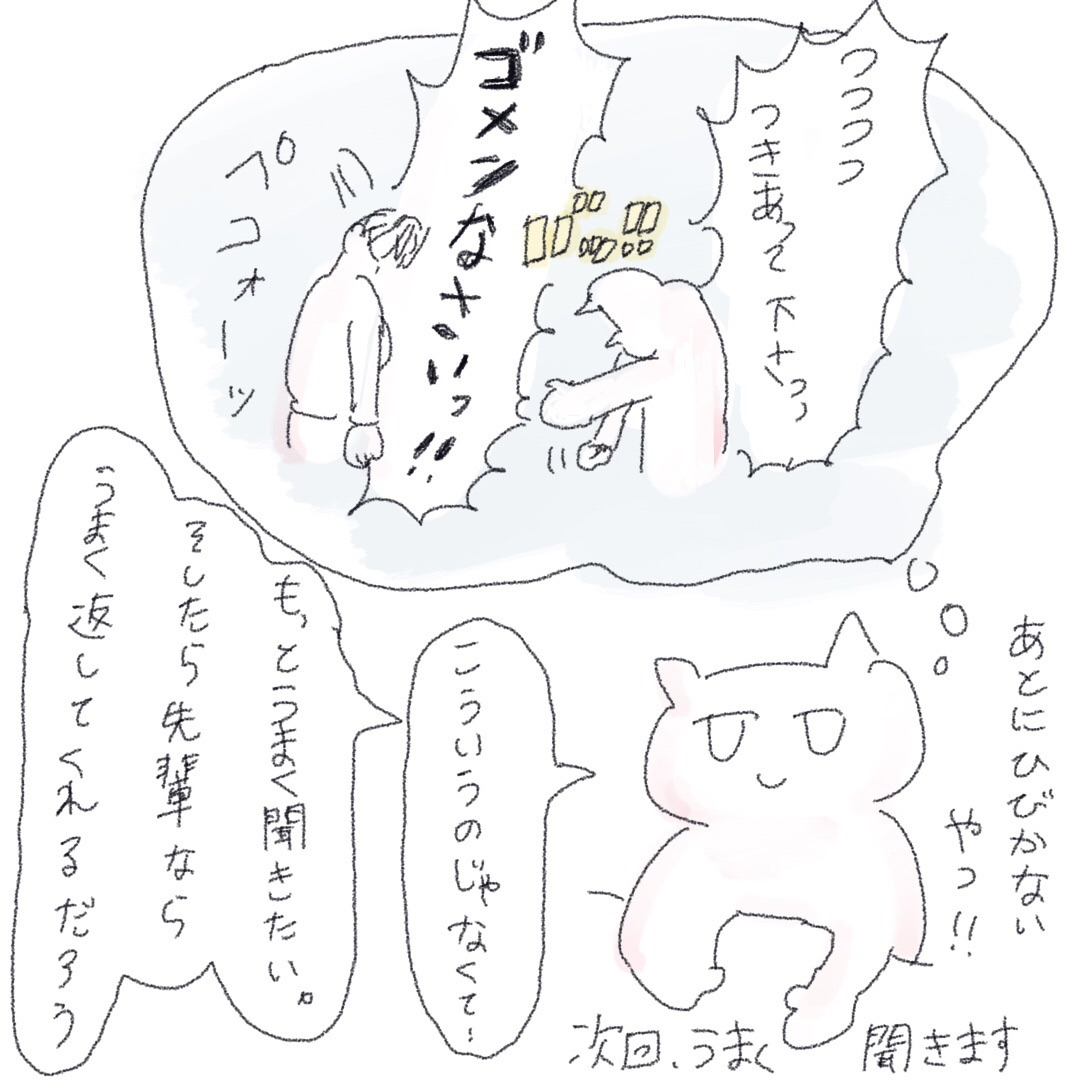 つつつつ
つきあって下さっっ
ゴメンなさいっ!!
ペコォーッ
あとにひびかない
やつ!!
こういうのじゃなくて~
もっとうまく聞きたい。
そしたら先輩なら
うまく返してくれるだろう
次回、うまく聞きます